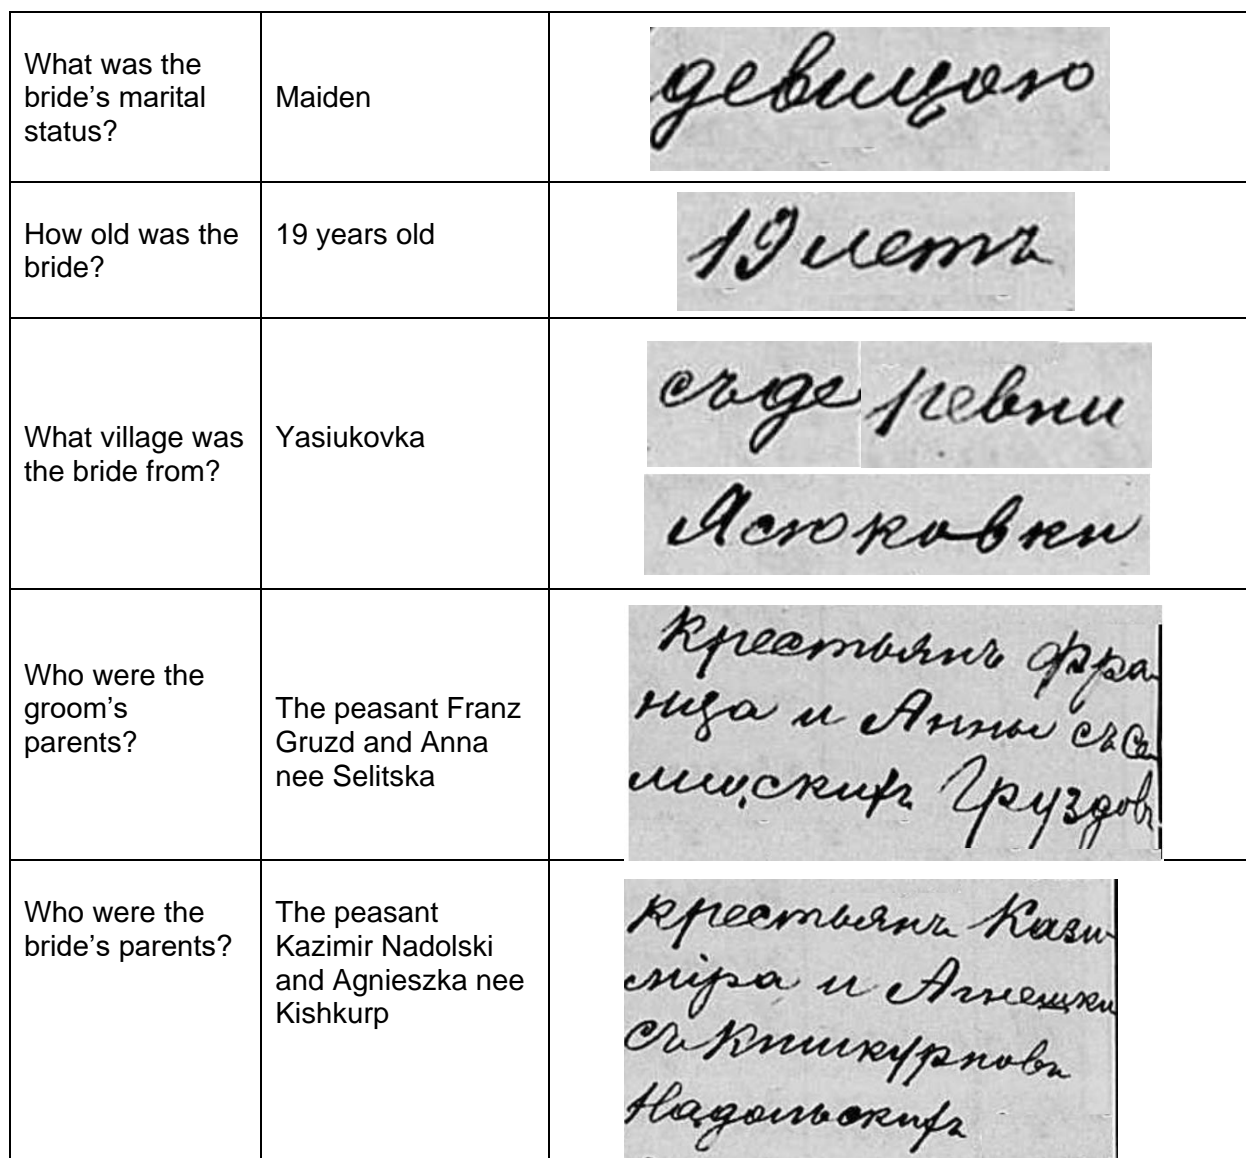 What was the
bride's marital
status?
Maiden
девицою
How old was the
bride?
19 years old
19 летъ
What village was
the bride from?
Yasiukovka
съ де ревни
Ясюковки
Who were the
groom's
parents?
The peasant Franz
Gruzd and Anna
nee Selitska
крестьянъ Фра-
нца и Анны съ Се-
лицскихъ Груздовъ
Who were the
bride's parents?
The peasant
Kazimir Nadolski
and Agnieszka nee
Kishkurp
крестьянъ Кази-
міра и Агнешки
съ Кишкурповъ
Надольскихъ